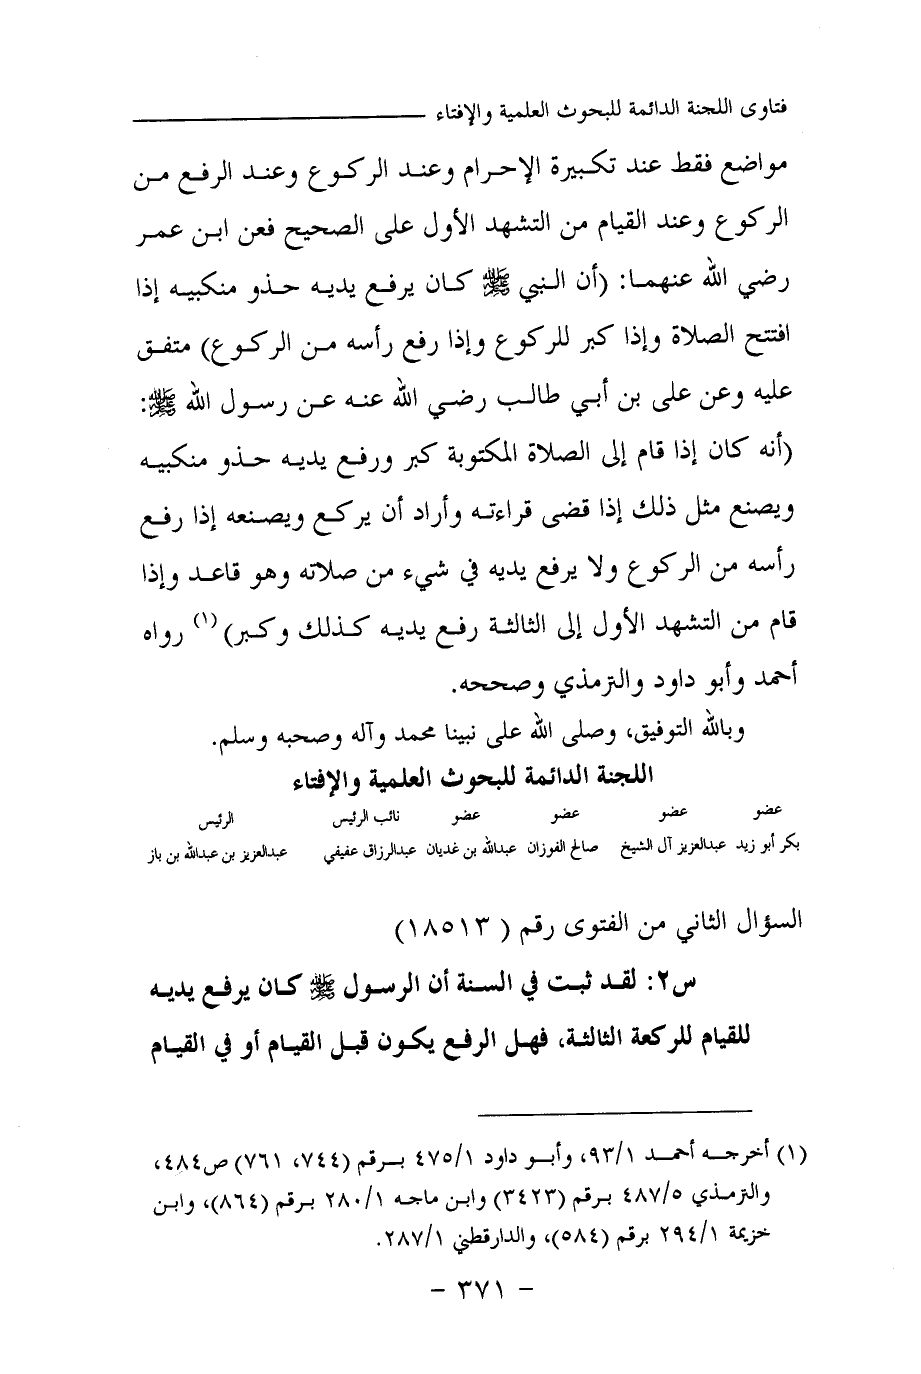 فتاوى اللجنة الدائمة للبحوث العلمية والإفتاء
مواضع فقط عند تكبيرة الإحرام وعند الركوع وعند الرفع من
الركوع وعند القيام من التشهد الأول على الصحيح فعن ابن عمر
رضي الله عنهما: (أن النبي ﷺ كان يرفع يديه حذو منكبيه إذا
افتتح الصلاة وإذا كبر للركوع وإذا رفع رأسه من الركوع) متفق
عليه وعن علي بن أبي طالب رضي الله عنه عن رسول الله ﷺ:
(أنه كان إذا قام إلى الصلاة المكتوبة كبر ورفع يديه حذو منكبيه
ويصنع مثل ذلك إذا قضى قراءته وأراد أن يركع ويصنعه إذا رفع
رأسه من الركوع ولا يرفع يديه في شيء من صلاته وهو قاعد وإذا
قام من التشهد الأول إلى الثالثة رفع يديه كذلك وكبر)(١) رواه
أحمد وأبو داود والترمذي وصححه.
وبالله التوفيق، وصلى الله على نبينا محمد وآله وصحبه وسلم.
اللجنة الدائمة للبحوث العلمية والإفتاء
عضو عضو عضو عضو نائب الرئيس الرئيس
بكر أبو زيد عبدالعزيز آل الشيخ صالح الفوزان عبدالله بن غديان عبدالرزاق عفيفي عبدالعزيز بن عبدالله بن باز
السؤال الثاني من الفتوى رقم ( ١٨٥١٣)
س٢: لقد ثبت في السنة أن الرسول ﷺ كان يرفع يديه
للقيام للركعة الثالثة، فهل الرفع يكون قبل القيام أو في القيام
(١) أخرجه أحمد ٩٣/١، وأبو داود ٤٧٥/١ برقم (٧٤٤، ٧٦١) ص٤٨٤،
والترمذي ٤٨٧/٥ برقم (٣٤٢٣) وابن ماجه ٢٨٠/١ برقم (٨٦٤)، وابن
خزيمة ٢٩٤/١ برقم (٥٨٤)، والدارقطني ٢٨٧/١.
- ٣٧١ -